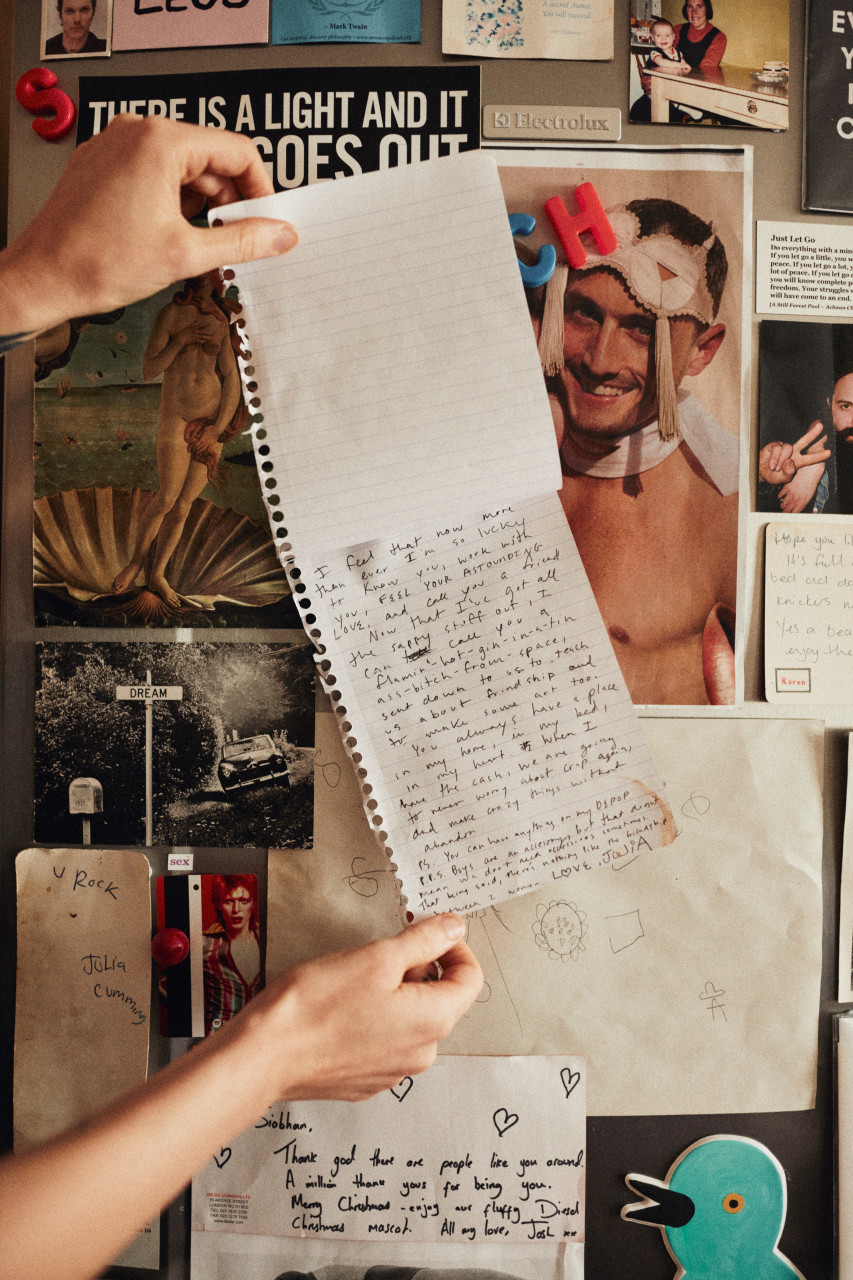 – Mark Twain
A second chance.
You will succeed.
S
THERE IS A LIGHT AND IT
GOES OUT
Electrolux
C
H
Just Let Go
Do everything with a mind
If you let go a little, you w
peace. If you let go a lot, y
lot of peace. If you let go
you will know complete p
freedom. Your struggles
will have come to an end.
I feel that now more
than ever I'm so lucky
to know you, work with
you, FEEL YOUR ASTOUNDING
LOVE, and call you a friend
Now that I've got all
the sappy stuff out, I
can call you a
flamin'-hot-gin-in-a-tin
ass-bitch-from-space,
sent down to us to teach
us about friendship and
to make some art too.
You always have a place
in my home, in my bed,
in my heart When I
have the cash, we are going
to never worry about crap again,
and make crazy things without
abandon
PS. You can have anything on my DEPOP
P.P.S. Boys are an accessory, but that doesn't
mean we don't need accessories sometimes.
That being said, there's nothing like the friendship
between 2 women. LOVE, JULIA
Hope you li
It's full
bed and do
knickers n
Yes a bea
enjoy the
Karen
DREAM
sex
U Rock
Julia
Cumming
Siobhan,
Thank god there are people like you around.
A million thank yous for being you.
Merry Christmas - enjoy our fluffy Diesel
Christmas mascot. All my love, Josh xxx